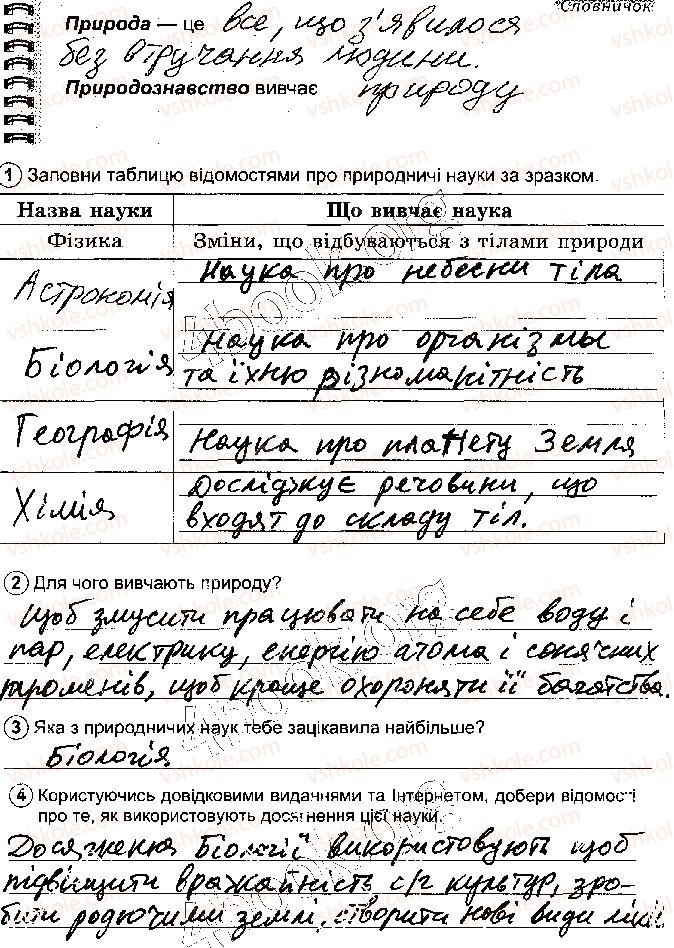 *Словничок
Природа — це все, що з'явилося
без втручання людини.
Природознавство вивчає природу
1 Заповни таблицю відомостями про природничі науки за зразком.
Назва науки Що вивчає наука
Фізика Зміни, що відбуваються з тілами природи
Астрономія Наука про небесни тіла
Біологія Наука про організмы
та їхню різноманітність
Географія Наука про планету Земля
Хімія Досліджує речовини, що
входят до складу тіл.
2 Для чого вивчають природу?
Щоб змусити працювати на себе воду і
пар, електрику, енергію атома і сонячних
променів, щоб краще охороняти її багатства.
3 Яка з природничих наук тебе зацікавила найбільше?
Біологія
4 Користуючись довідковими виданнями та Інтернетом, добери відомості
про те, як використовують досягнення цієї науки.
Досяження Біології використовують щоб
підвищити вражайність с/г культур, зро-
бити родючими землі, створити нові види ліків